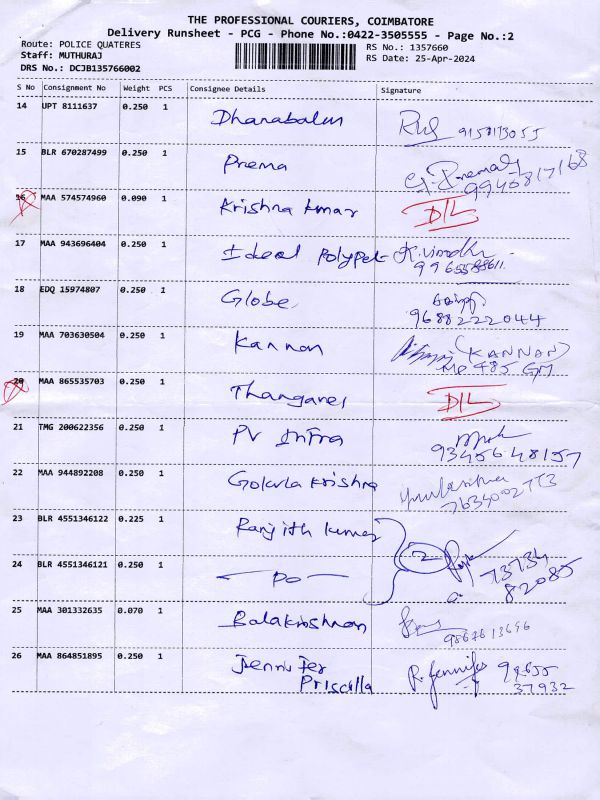 THE PROFESSIONAL COURIERS, COIMBATORE
Delivery Runsheet - PCG - Phone No.:0422-3505555 - Page No.:2
Route: POLICE QUATERES RS No.: 1357660
Staff: MUTHURAJ RS Date: 25-Apr-2024
DRS No.: DCJB135766002
S No Consignment No Weight PCS Consignee Details Signature
14 UPT 8111637 0.250 1 Dhanabalan
15 BLR 670287499 0.250 1 Prema 9940817168
16 MAA 574574960 0.090 1 Krishna kumar D/L
17 MAA 943696404 0.250 1 Ideal Polypet
18 EDQ 15974807 0.250 1 Globe 9688222044
19 MAA 703630504 0.250 1 Kannan (KANNAN)
20 MAA 865535703 0.250 1 Thangavel D/L
21 TMG 200622356 0.250 1 PV Infra 9345648157
22 MAA 944892208 0.250 1 Gokula Krishna
23 BLR 4551346122 0.225 1 Ranjith kumar
24 BLR 4551346121 0.250 1 — DO — 2 73734 82085
25 MAA 301332635 0.070 1 Balakrishnan
26 MAA 864851895 0.250 1 Jennifer R. Jennifer 99655
Priscilla 37932